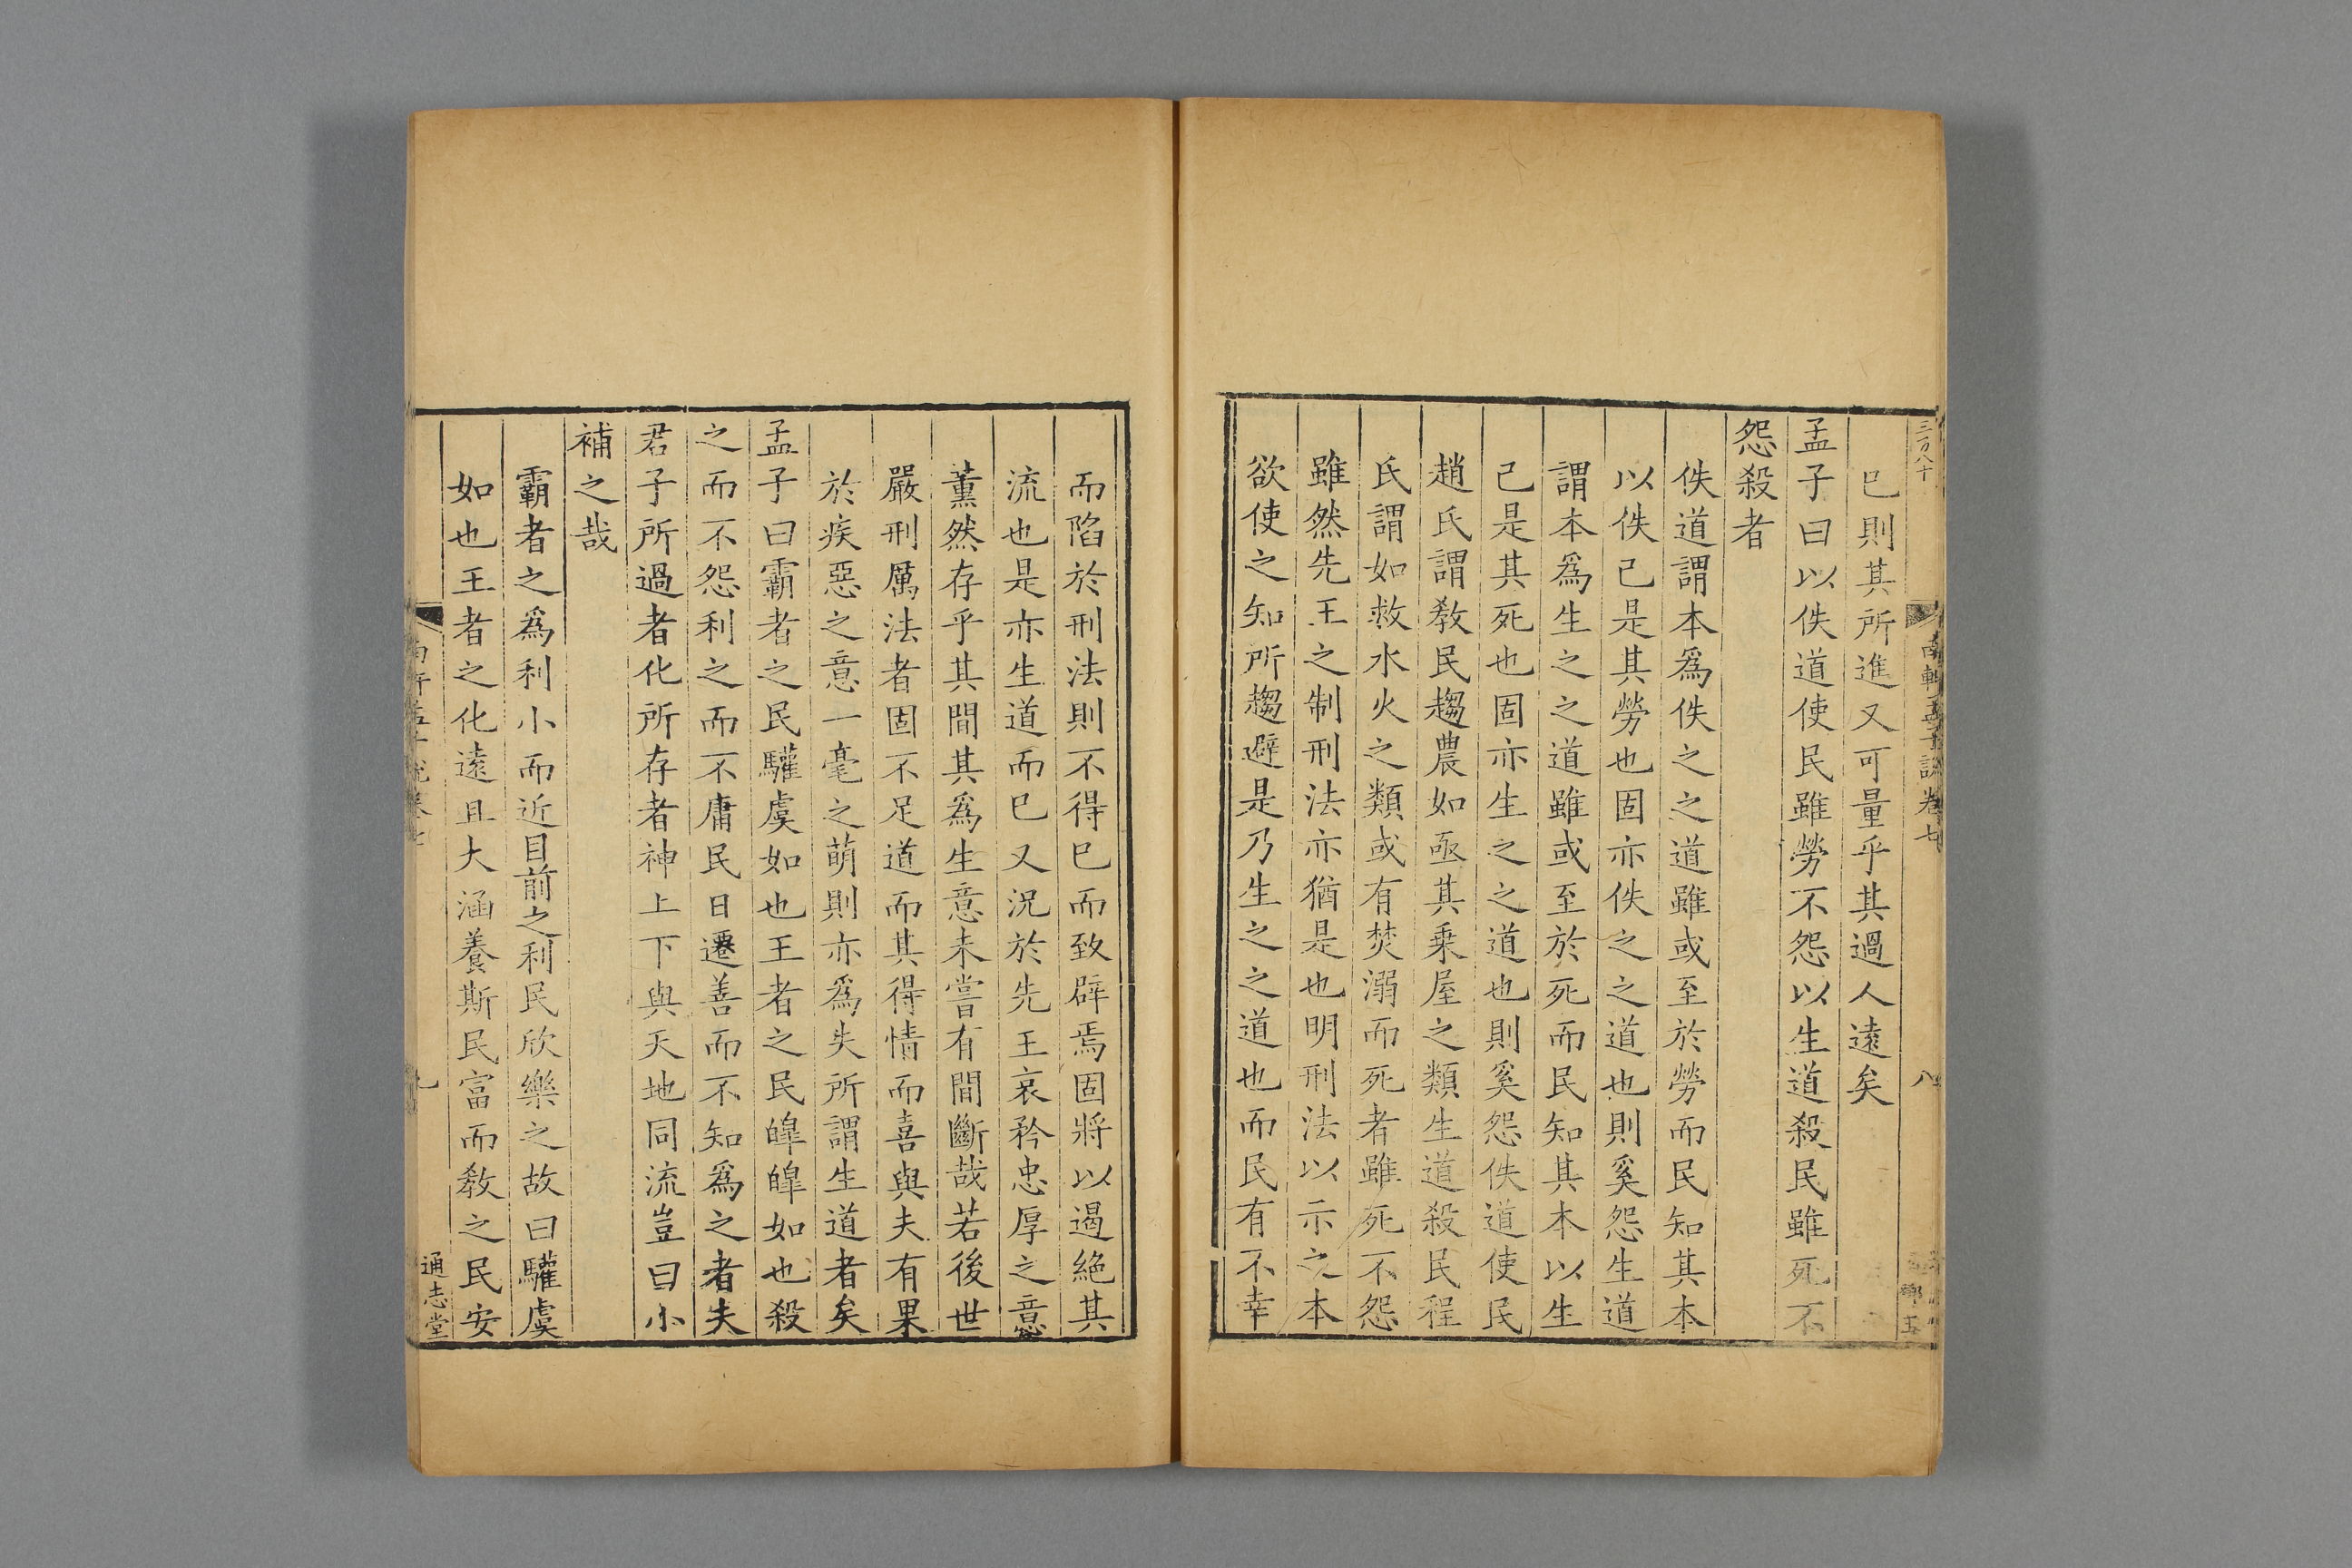 已則其所進又可量乎其過人遠矣
孟子曰以佚道使民雖勞不怨以生道殺民雖死不
怨殺者
佚道謂本爲佚之之道雖或至於勞而民知其本
以佚己是其勞也固亦佚之之道也則奚怨生道
謂本爲生之之道雖或至於死而民知其本以生
己是其死也固亦生之之道也則奚怨佚道使民
趙氏謂教民趨農如亟其乗屋之類生道殺民程
氏謂如救水火之類或有焚溺而死者雖死不怨
雖然先王之制刑法亦猶是也明刑法以示之本
欲使之知所趨避是乃生之之道也而民有不幸
而陷於刑法則不得已而致辟焉固將以遏絶其
流也是亦生道而已又況於先王哀矜忠厚之意
薫然存乎其間其爲生意未嘗有間斷哉若後世
嚴刑厲法者固不足道而其得情而喜與夫有果
於疾惡之意一毫之萌則亦爲失所謂生道者矣
孟子曰霸者之民驩虞如也王者之民皥皥如也殺
之而不怨利之而不庸民日遷善而不知爲之者夫
君子所過者化所存者神上下與天地同流豈曰小
補之哉
霸者之爲利小而近目前之利民欣樂之故曰驩虞
如也王者之化遠且大涵養斯民富而敎之民安
通志堂